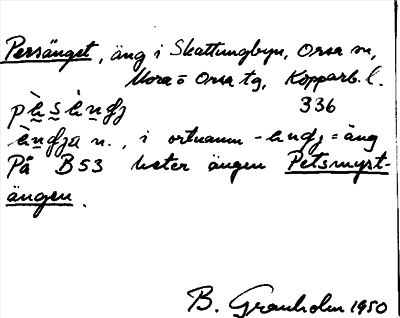 Persänget, äng i Skattungbyn, Orsa sn,
Mora o Orsa tg, Kopparb. l.
336
n., i ortnamn - = äng
På B53 heter ängen Petsmyst-
ängen.
B. Granholm 1950